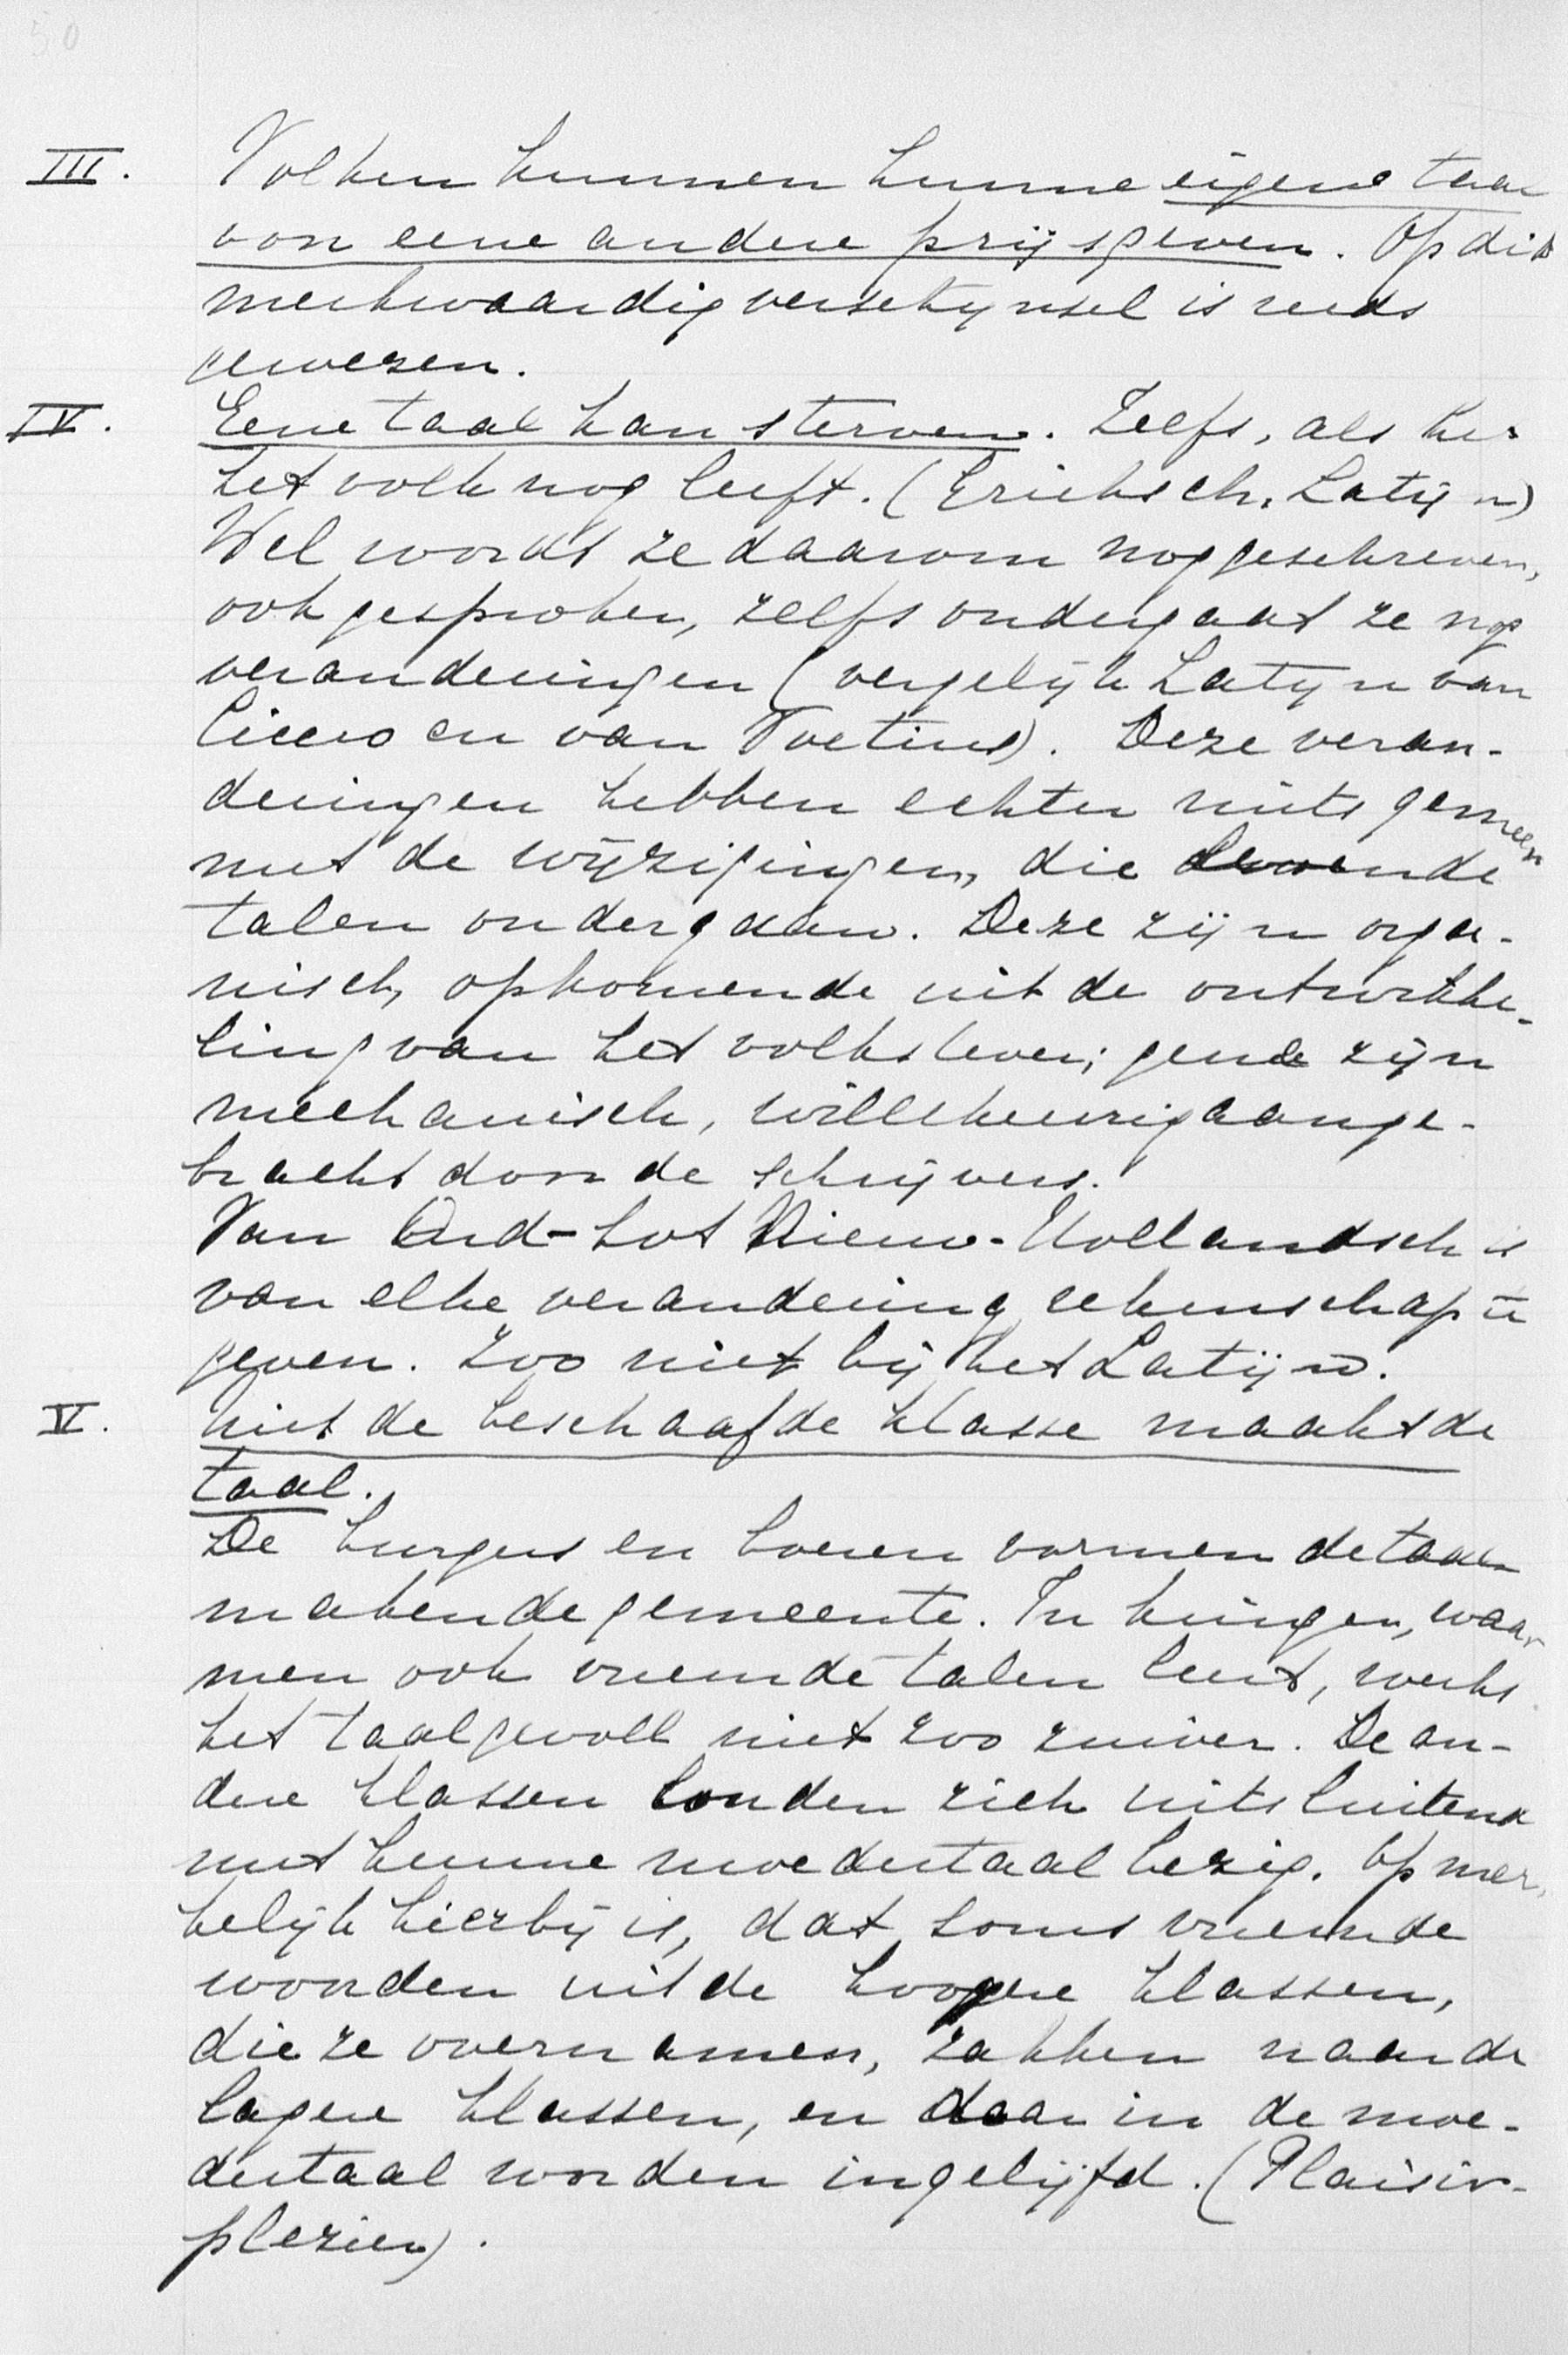 50
III. Volken kunnen hunne eigene taal
voor eene andere prijsgeven. Op dit
merkwaardig verschijnsel is reeds
gewezen.
IV. Eene taal kan sterven. Zelfs, als
het volk nog leeft. (Grieksch, Latijn)
Wel wordt ze daarom nog geschreven,
ook gesproken, zelfs ondergaat ze nog
veranderingen (vergelijk Latijn van
Cicero en van Voetius). Deze veran-
deringen hebben echter niets gemeen
met de wijzigingen, die levende
talen ondergaan. Deze zijn orga-
nisch, opkomende uit de ontwikke-
ling van het volksleven; gene zijn
mechanisch, willekeurig aange-
bracht door de schrijvers.
Van Oud- tot Nieuw-Hollandsch is
van elke verandering rekenschap te
geven. Zoo niet bij het Latijn.
V. Niet de beschaafde klasse maakt de
taal.
De burgers en boeren vormen de taal-
makende gemeente. In kringen, waar
men ook vreemde talen leert, werkt
het taalgevoel niet zoo zuiver. De an-
dere klassen houden zich uitsluitend
met hunne moedertaal bezig. Opmer-
kelijk hierbij is, dat soms vreemde
woorden uit de hoogere klassen,
die ze overnamen, zakken naar de
lagere klassen, en daar in de moe-
dertaal worden ingelijfd. (Plaisir-
plezier).